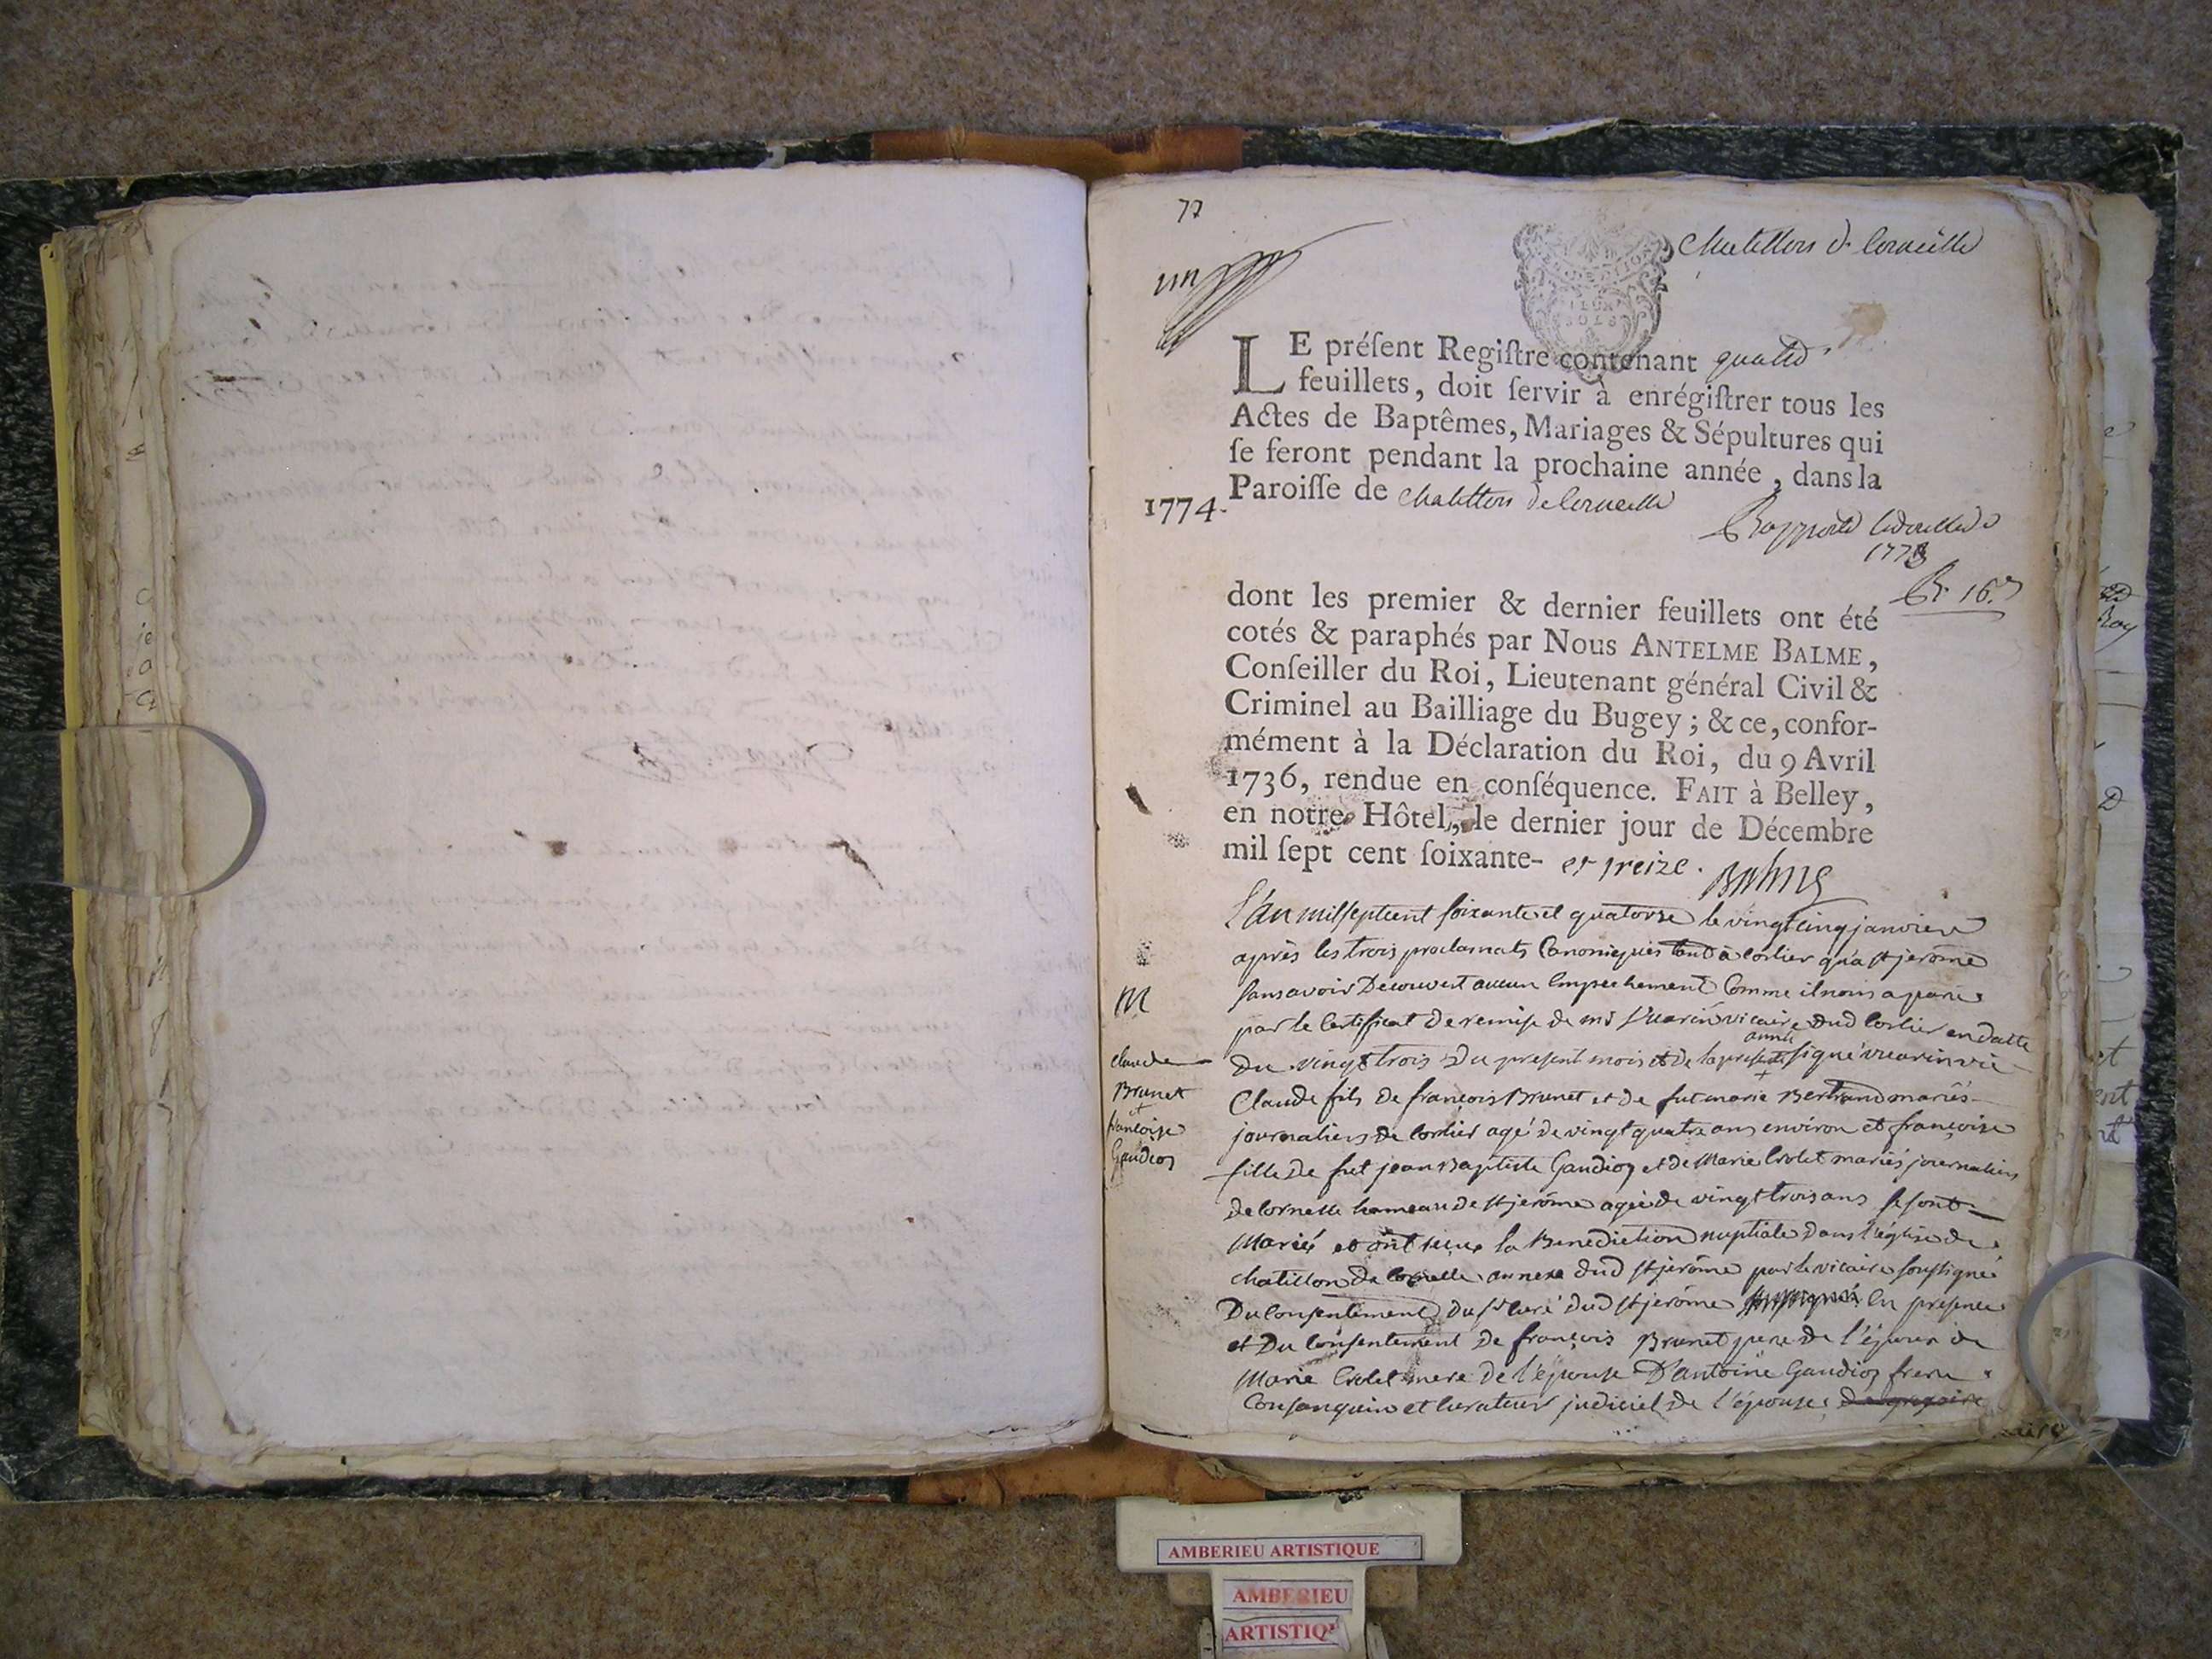 77
un
Chatillon de Corneille
LE préſent Regiſtre contenant quatre
feuillets, doit ſervir à enrégiſtrer tous les
Actes de Baptêmes, Mariages & Sépultures qui
ſe feront pendant la prochaine année, dans la
1774. Paroiſſe de Chatillon de Corneille
1773
dont les premier & dernier feuillets ont été
cotés & paraphés par Nous ANTELME BALME,
Conſeiller du Roi, Lieutenant général Civil &
Criminel au Bailliage du Bugey; & ce, confor-
mément à la Déclaration du Roi, du 9 Avril
1736, rendue en conſéquence. FAIT à Belley,
en notre Hôtel, le dernier jour de Décembre
mil ſept cent ſoixante- et treize. Balme
L'an mil sept cent soixante et quatorze le vingt cinq janvier
après les trois proclamats Canoniques tant à Corlier qu'a st jerôme
sans avoir Decouvert aucun Empechement Comme il nous a paru
par le Certificat de remise de mr vuarin vicaire dud Corlier en datte
Du vingt trois Du present mois et de la presente année signé vuarin vic
M
Claude
Brunet
et
françoise
Gaudion
Claude fils de françois Brunet et de fut marie Bertrand mariés
journaliers de Corlier agé de vingt quatre ans environ et françoise
fille de fut jean Baptiste Gaudion et de Marie Crolet mariés journaliers
de Cornelle hameau de st jerôme agée de vingt trois ans se sont
Mariés et ont reçu la Benediction nuptiale dans l'église de
chatillon de Cornelle annexe dud st jerôme par le vicaire soussigné
Du Consentement du sr Curé dud st jerôme En presence
et Du Consentement de françois Brunet pere de l'époux de
Marie Crolet mere de l'épouse D'antoine Gaudion frere
Consanguin et Curateur judiciel de l'épouse
AMBERIEU ARTISTIQUE
AMBERIEU
ARTISTIQ